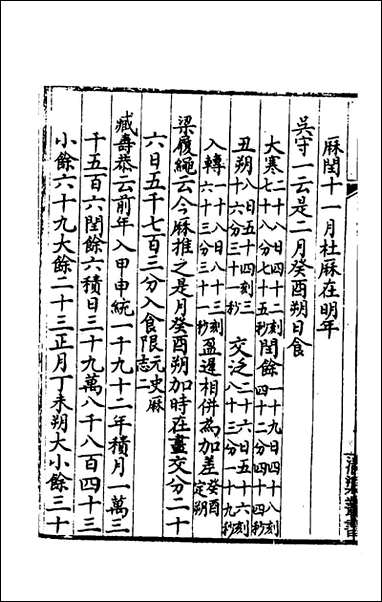 厤閏十一月杜厤在明年
吳守一云是二月癸酉朔日食
大寒二十八日四十二刻七十八分七十五秒閏餘一十九日四十八刻四十二分四十四秒
丑朔八日五十四刻三十六分三十一秒交泛二十六日五十六刻八十三分一十九秒
入轉一十八日八十三刻六十三分三十一秒盈遲相併為加差癸酉定朔
梁履繩云今厤推之是月癸酉朔加時在晝交分二十
六日五千七百三分入食限元史厤志二
臧壽恭云前年入甲申統一千九十二年積月一萬三
千五百六閏餘六積日三十九萬八千八百四十三
小餘六十九大餘二十三正月丁未朔大小餘三十